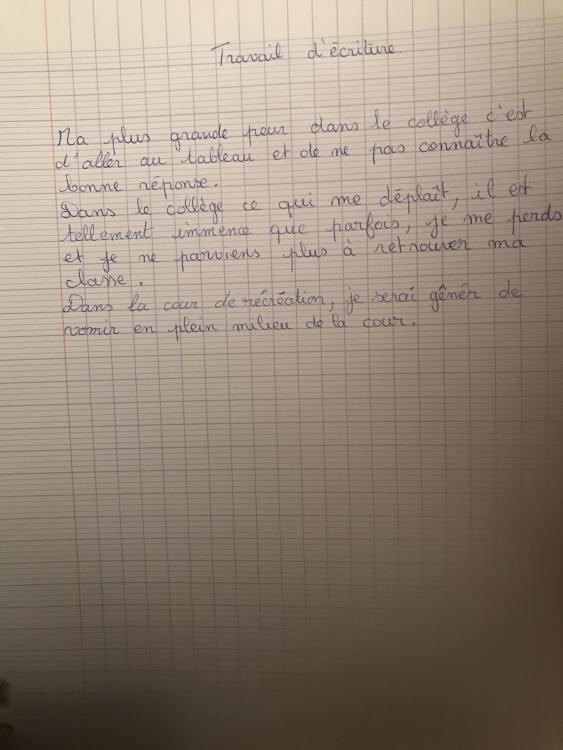 Travail d'écriture
Ma plus grande peur dans le collège c'est
d'aller au tableau et de ne pas connaître la
bonne réponse.
Dans le collège ce qui me déplaît, il est
tellement immence que parfois, je me perds
et je ne parviens plus à retrouver ma
classe.
Dans la cour de récréation, je serai gênér de
vomir en plein milieu de la cour.